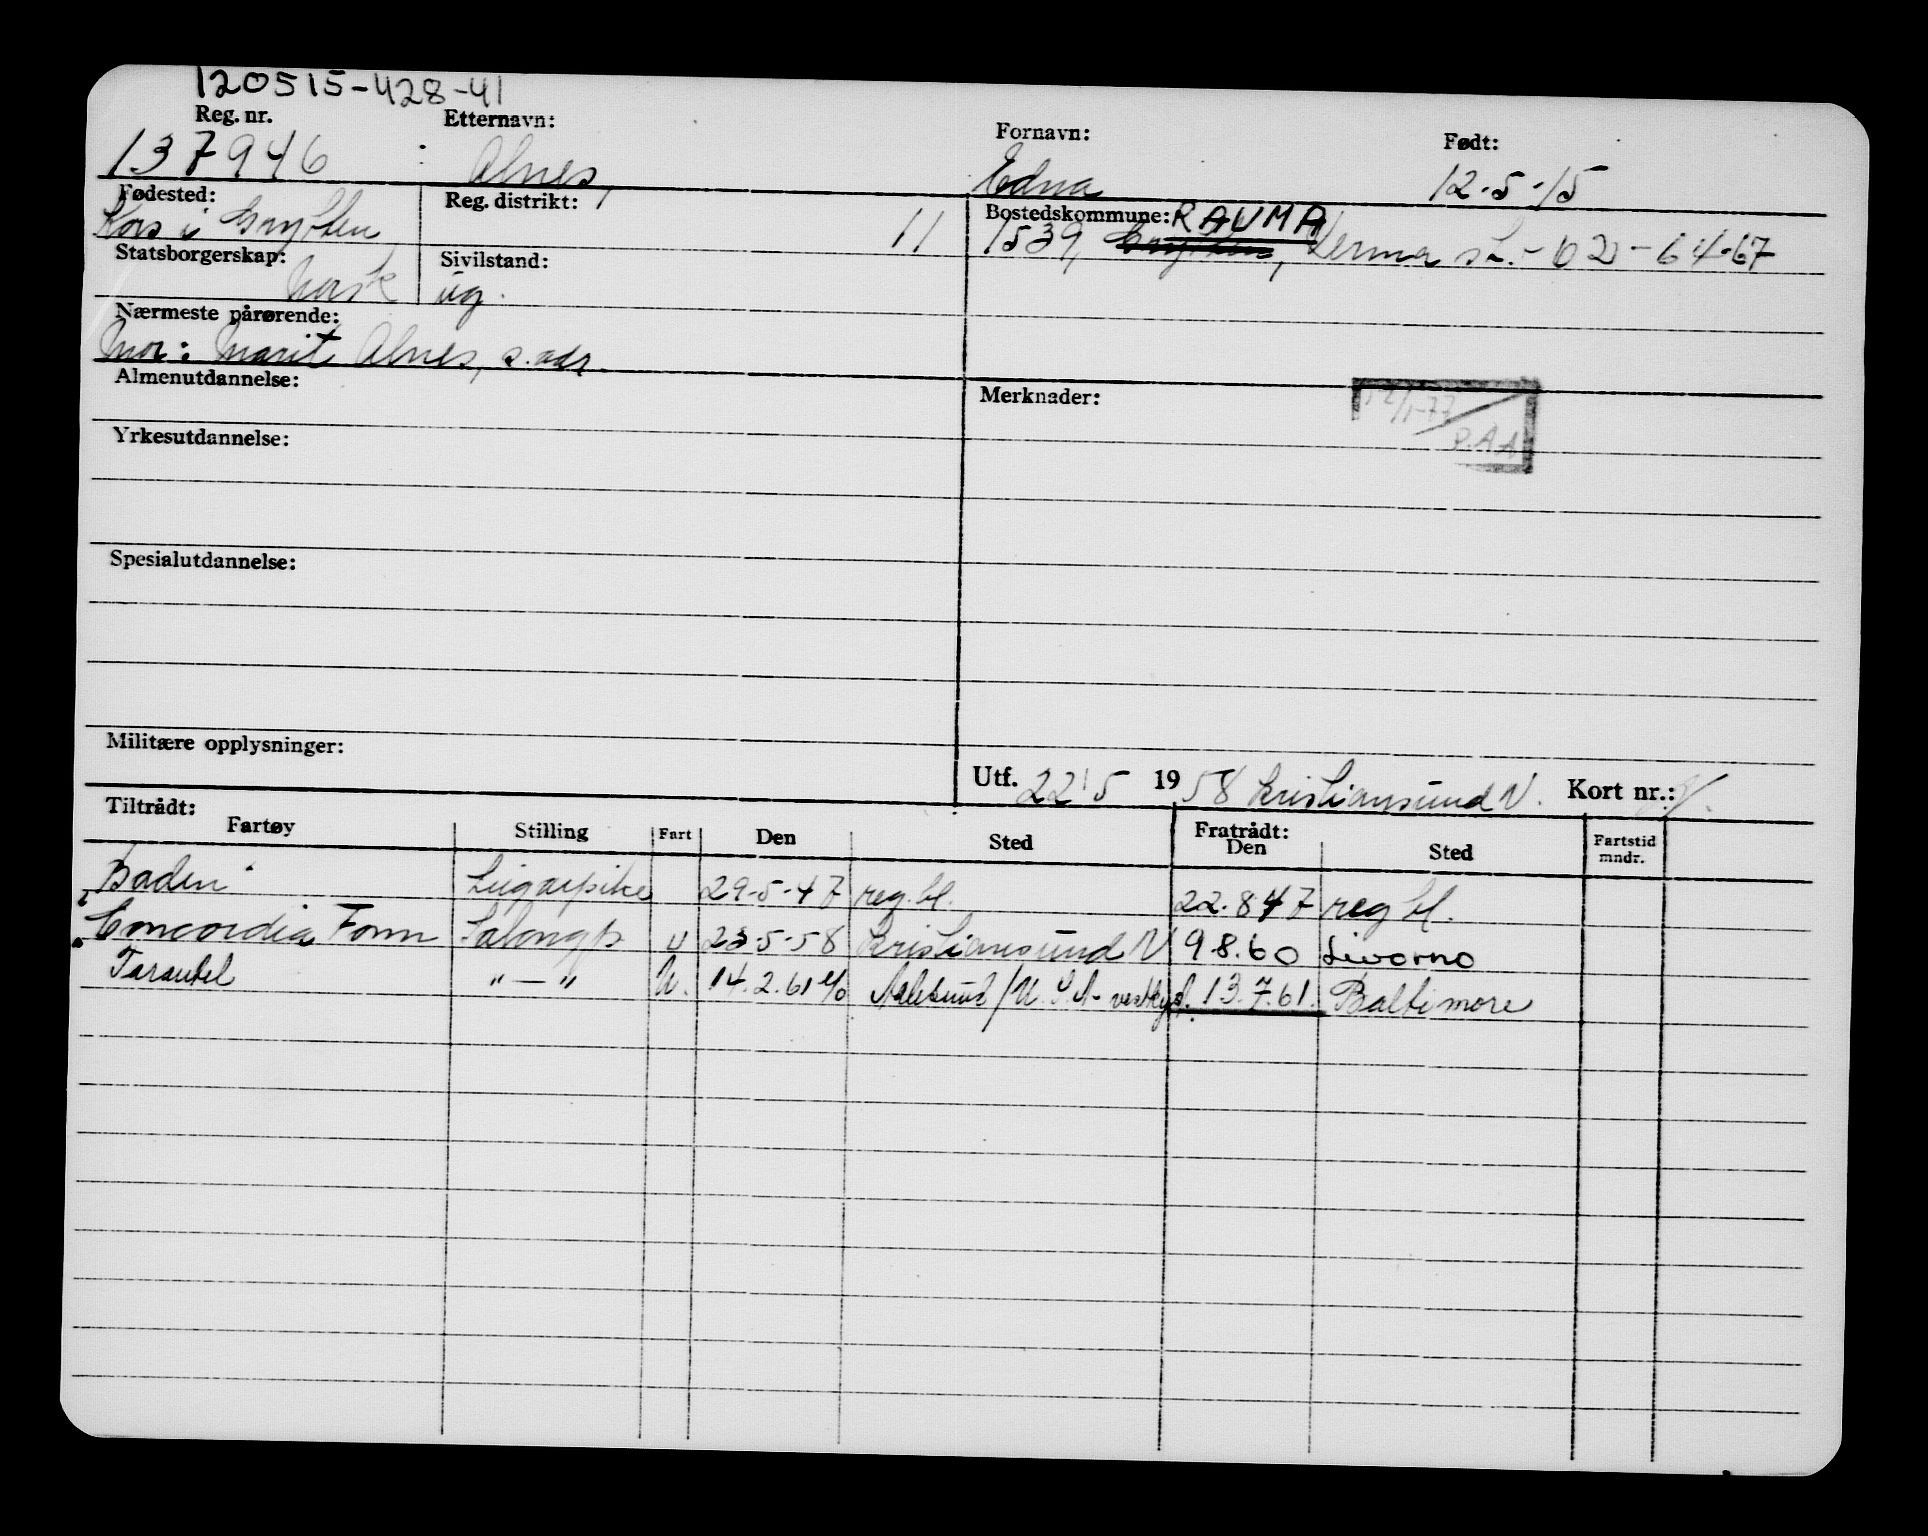 120515-428-41
Reg. nr. Etternavn: Fornavn: Født:
137946 Alnes, Edna 12-5-15
Fødested: Reg. distrikt: 11 Bostedskommune: RAUMA
Kors i Grytten 1539, Grytten, Verma st. - 62 - 64-67
Statsborgerskap: Sivilstand:
Norsk ug.
Nærmeste pårørende:
Mor: Marit Alnes, s. adr.
Almenutdannelse: Merknader:
12/1-77
P.AA
Yrkesutdannelse:
Spesialutdannelse:
Militære opplysninger:
Utf. 22/5 1958 Kristiansund N. Kort nr.:
Tiltrådt: Fratrådt:
Fartøy Stilling Fart Den Sted Den Sted Fartstid mndr.
Baden Lugarpike 29-5-47 reg. bl. 22.8 47 reg bl.
Concordia Fonn Salongp u 23-5-58 Kristiansund N 9 8.60 Livorno
Tarantel "—" U. 14.2.61 Aalesund/U.S.A- vestkyst. 13.7.61. Baltimore